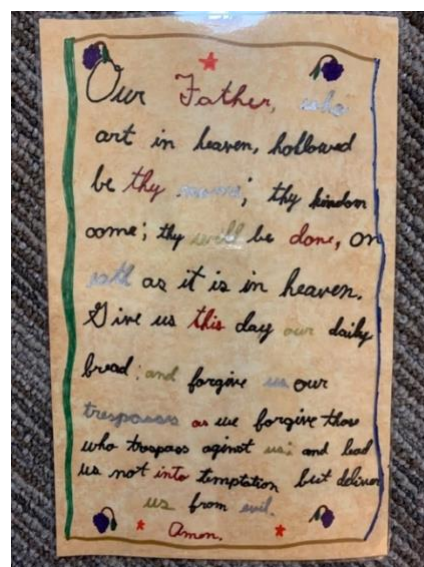 Our Father, who
art in heaven, hollowed
be thy name; thy kindom
come; thy will be done, on
as it is in heaven.
Give us this day our daily
bread: and forgive us our
trespasses as we forgive thos
who trespass aginst us: and lead
us not into temptation but deliver
us from evil.
Amen.